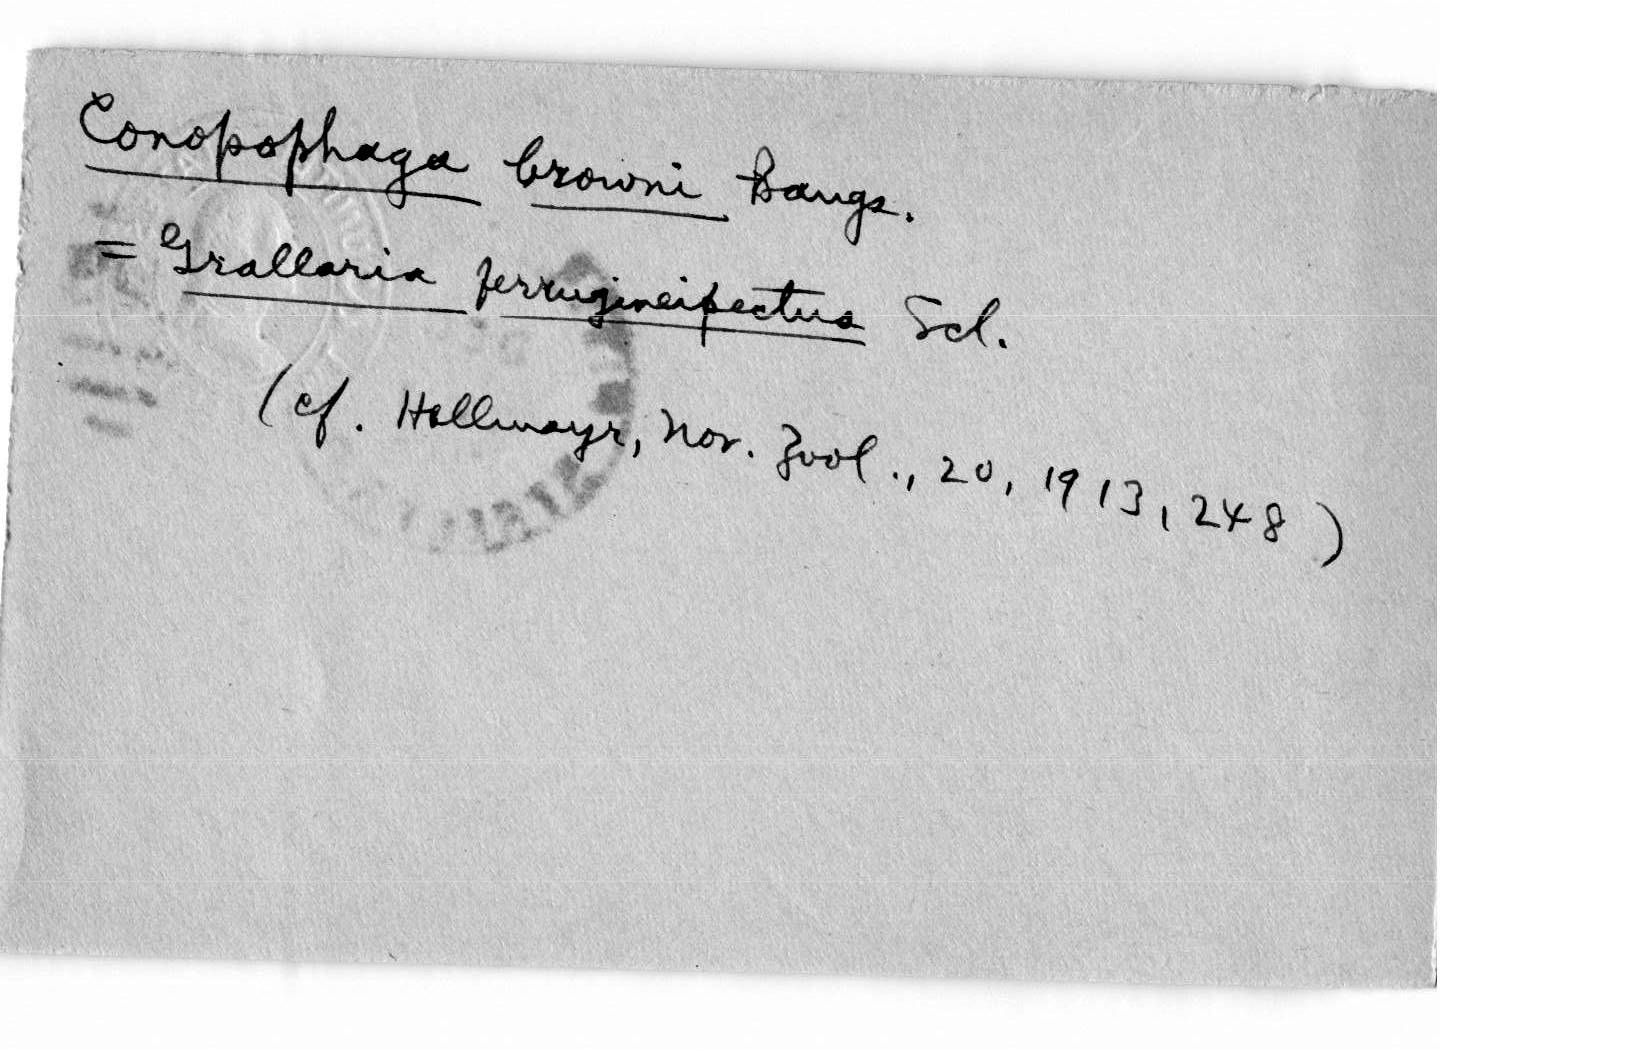 Conopophaga browni Bangs.
= Grallaria ferrugineipectus Scl.
(cf. Hellmayr, Nov. Zool., 20, 1913, 248)